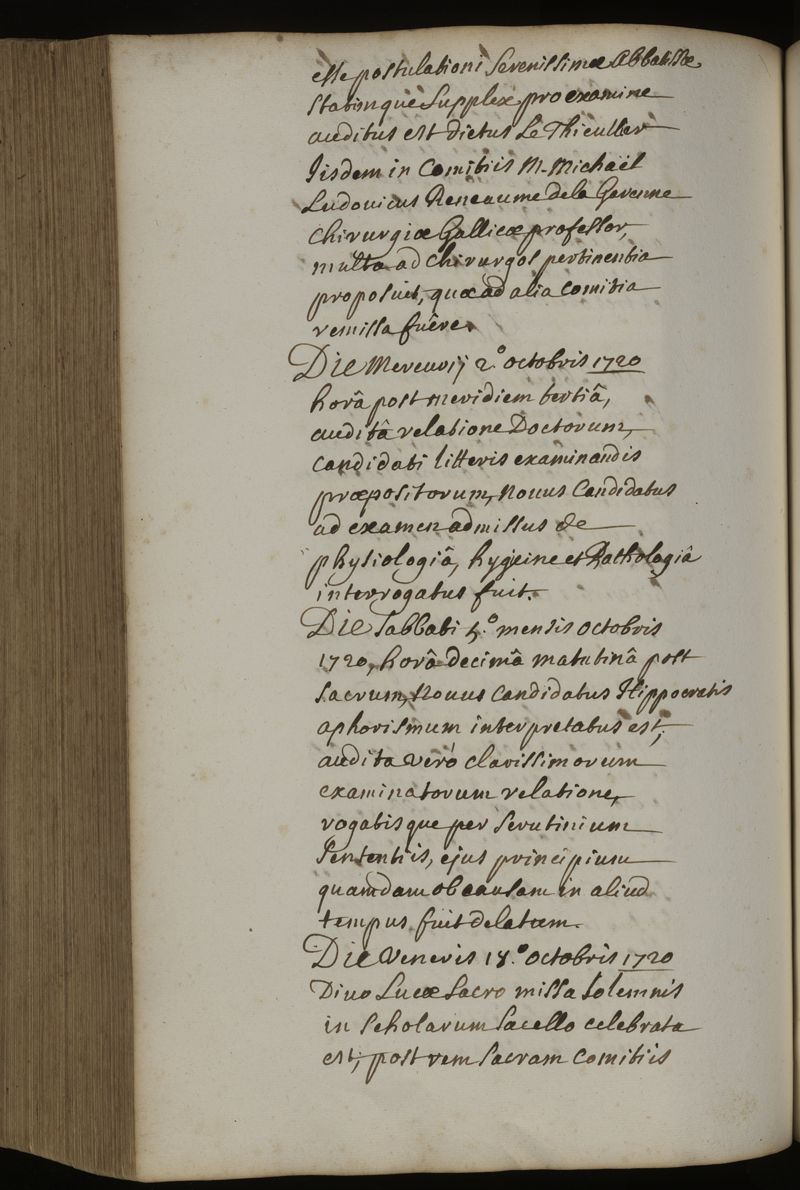 esse postulationi Serenissimæ Abbatissæ
Statimque Supplex pro examine
auditus est dictus Le Thieullier
Iisdem in Comitiis M. Michaël
Ludovicus Reneaume de la Garenne
Chirurgiæ Gallicæ professor,
multa ad Chirurgos pertinentia
proposuit, quæ ad alia Comitia
remissa fuêre.
Die Mercurij 2.º octobris 1720
horâ post meridiem tertiâ,
auditâ relatione Doctorum,
candidati litteris examinandis
præpositorum, Nouus Candidatus
ad examen admissus de
physiologiâ, hygieine et Pathologiâ
interrogatus fuit.
Die Sabbati 5.º mensis octobris
1720, horâ decimâ matutinâ post
Sacrum, Nouus Candidatus Hippocratis
aphorismum interpretatus est,
audita verò clarissimorum
examinatorum relatione,
rogatisque per Scrutinium
Sententiis, ejus principium
quamdam ob causam in aliud
tempus fuit delatum.
Die Veneris 18.º octobris 1720
Diuo Lucæ Sacro missa Solemnis
in Scholarum Sacello celebrata
est, post rem Sacram Comitiis